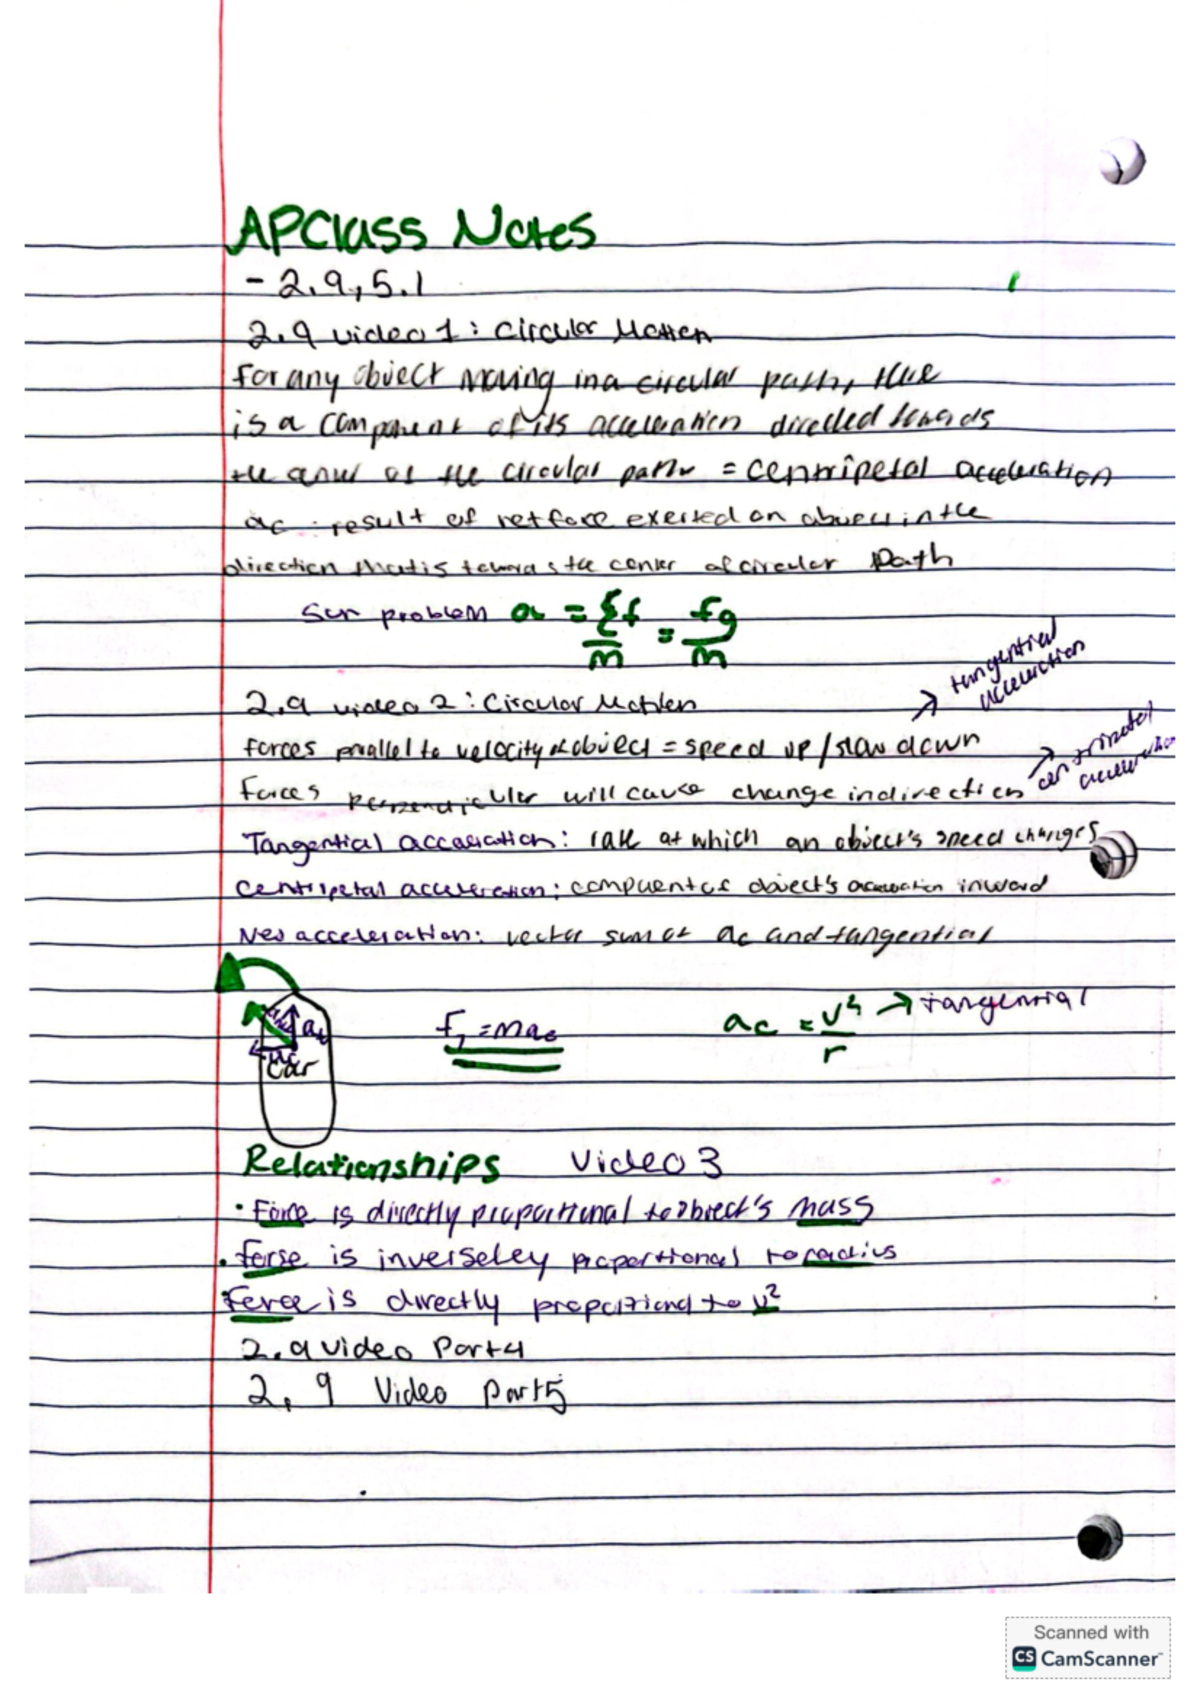 APClass Notes
- 2.9, 5.1
2.9 video 1: Circular Motion
For any object moving in a circular path, there
is a component of its acceleration directed towards
the center of the circular path = centripetal acceleration
ac: result of net force exerted on object in the
direction that is towards the center of circular path
Sun problem a = Σf/m = fg/m
2.9 video 2: Circular Motion
→ tangential acceleration
forces parallel to velocity of object = speed up / slow down
Forces perpendicular will cause change in direction
→ centripetal acceleration
Tangential acceleration: rate at which an object's speed changes
Centripetal acceleration: component of object's acceleration inward
Net acceleration: vector sum of ac and tangential
at
ac
car
=mac
ac = /r → tangential
Relationships Video 3
· Force is directly proportional to object's mass
· Forse is inverseley proportional to radius
· Force is directly proportional to v²
2.9 video Part 4
2.9 Video part 5
Scanned with
CS CamScanner